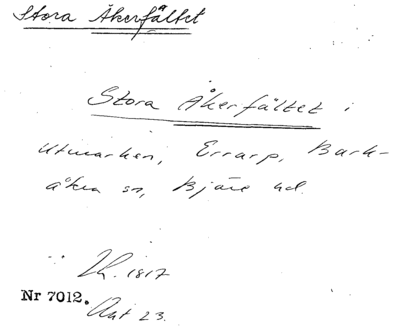 Stora Åkerfältet
Stora Åkerfältet i
Utmarken, Errarp, Bark-
åkra sn, Bjäre hd.
Lk. 1817
Nr 7012.
Akt 23.